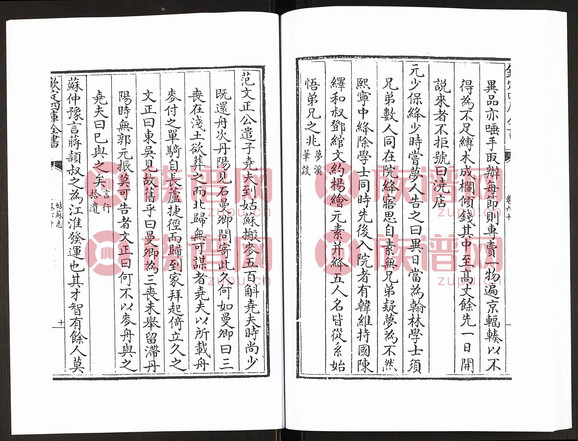 異品亦唾手取辦每即則專賣一物遍京輻輳以不
得為不足縛木成棚傾錢其中至高丈餘先一日開
說來者不拒號曰澆店
元少保絳少時嘗夢人告之曰異日當為翰林學士須
兄弟數人同在院絳寤思自素無兄弟疑夢為不然
熙寧中絳除學士同時先後入院者有韓維持國陳
繹和叔鄧綰文約楊繪元素并絳五人名皆從糸始
悟弟兄之兆夢溪筆談
范文正公遣子堯夫到姑蘇搬麥五百斛堯夫時尚少
既還舟次丹陽見石曼卿問寄此久何如曼卿曰三
喪在淺土欲葬之而北歸無可謀者堯夫以所載舟
麥付之單騎自長蘆捷徑而歸到家拜起侍立久之
文正曰東吳見故舊乎曰曼卿為三喪未舉留滯丹
陽時無郭元振莫可告者文正曰何不以麥舟與之
堯夫曰已與之矣言行拾遺
蘇仲豫言蔣穎叔之為江淮發運也其才智有餘人莫
欽定四庫全書